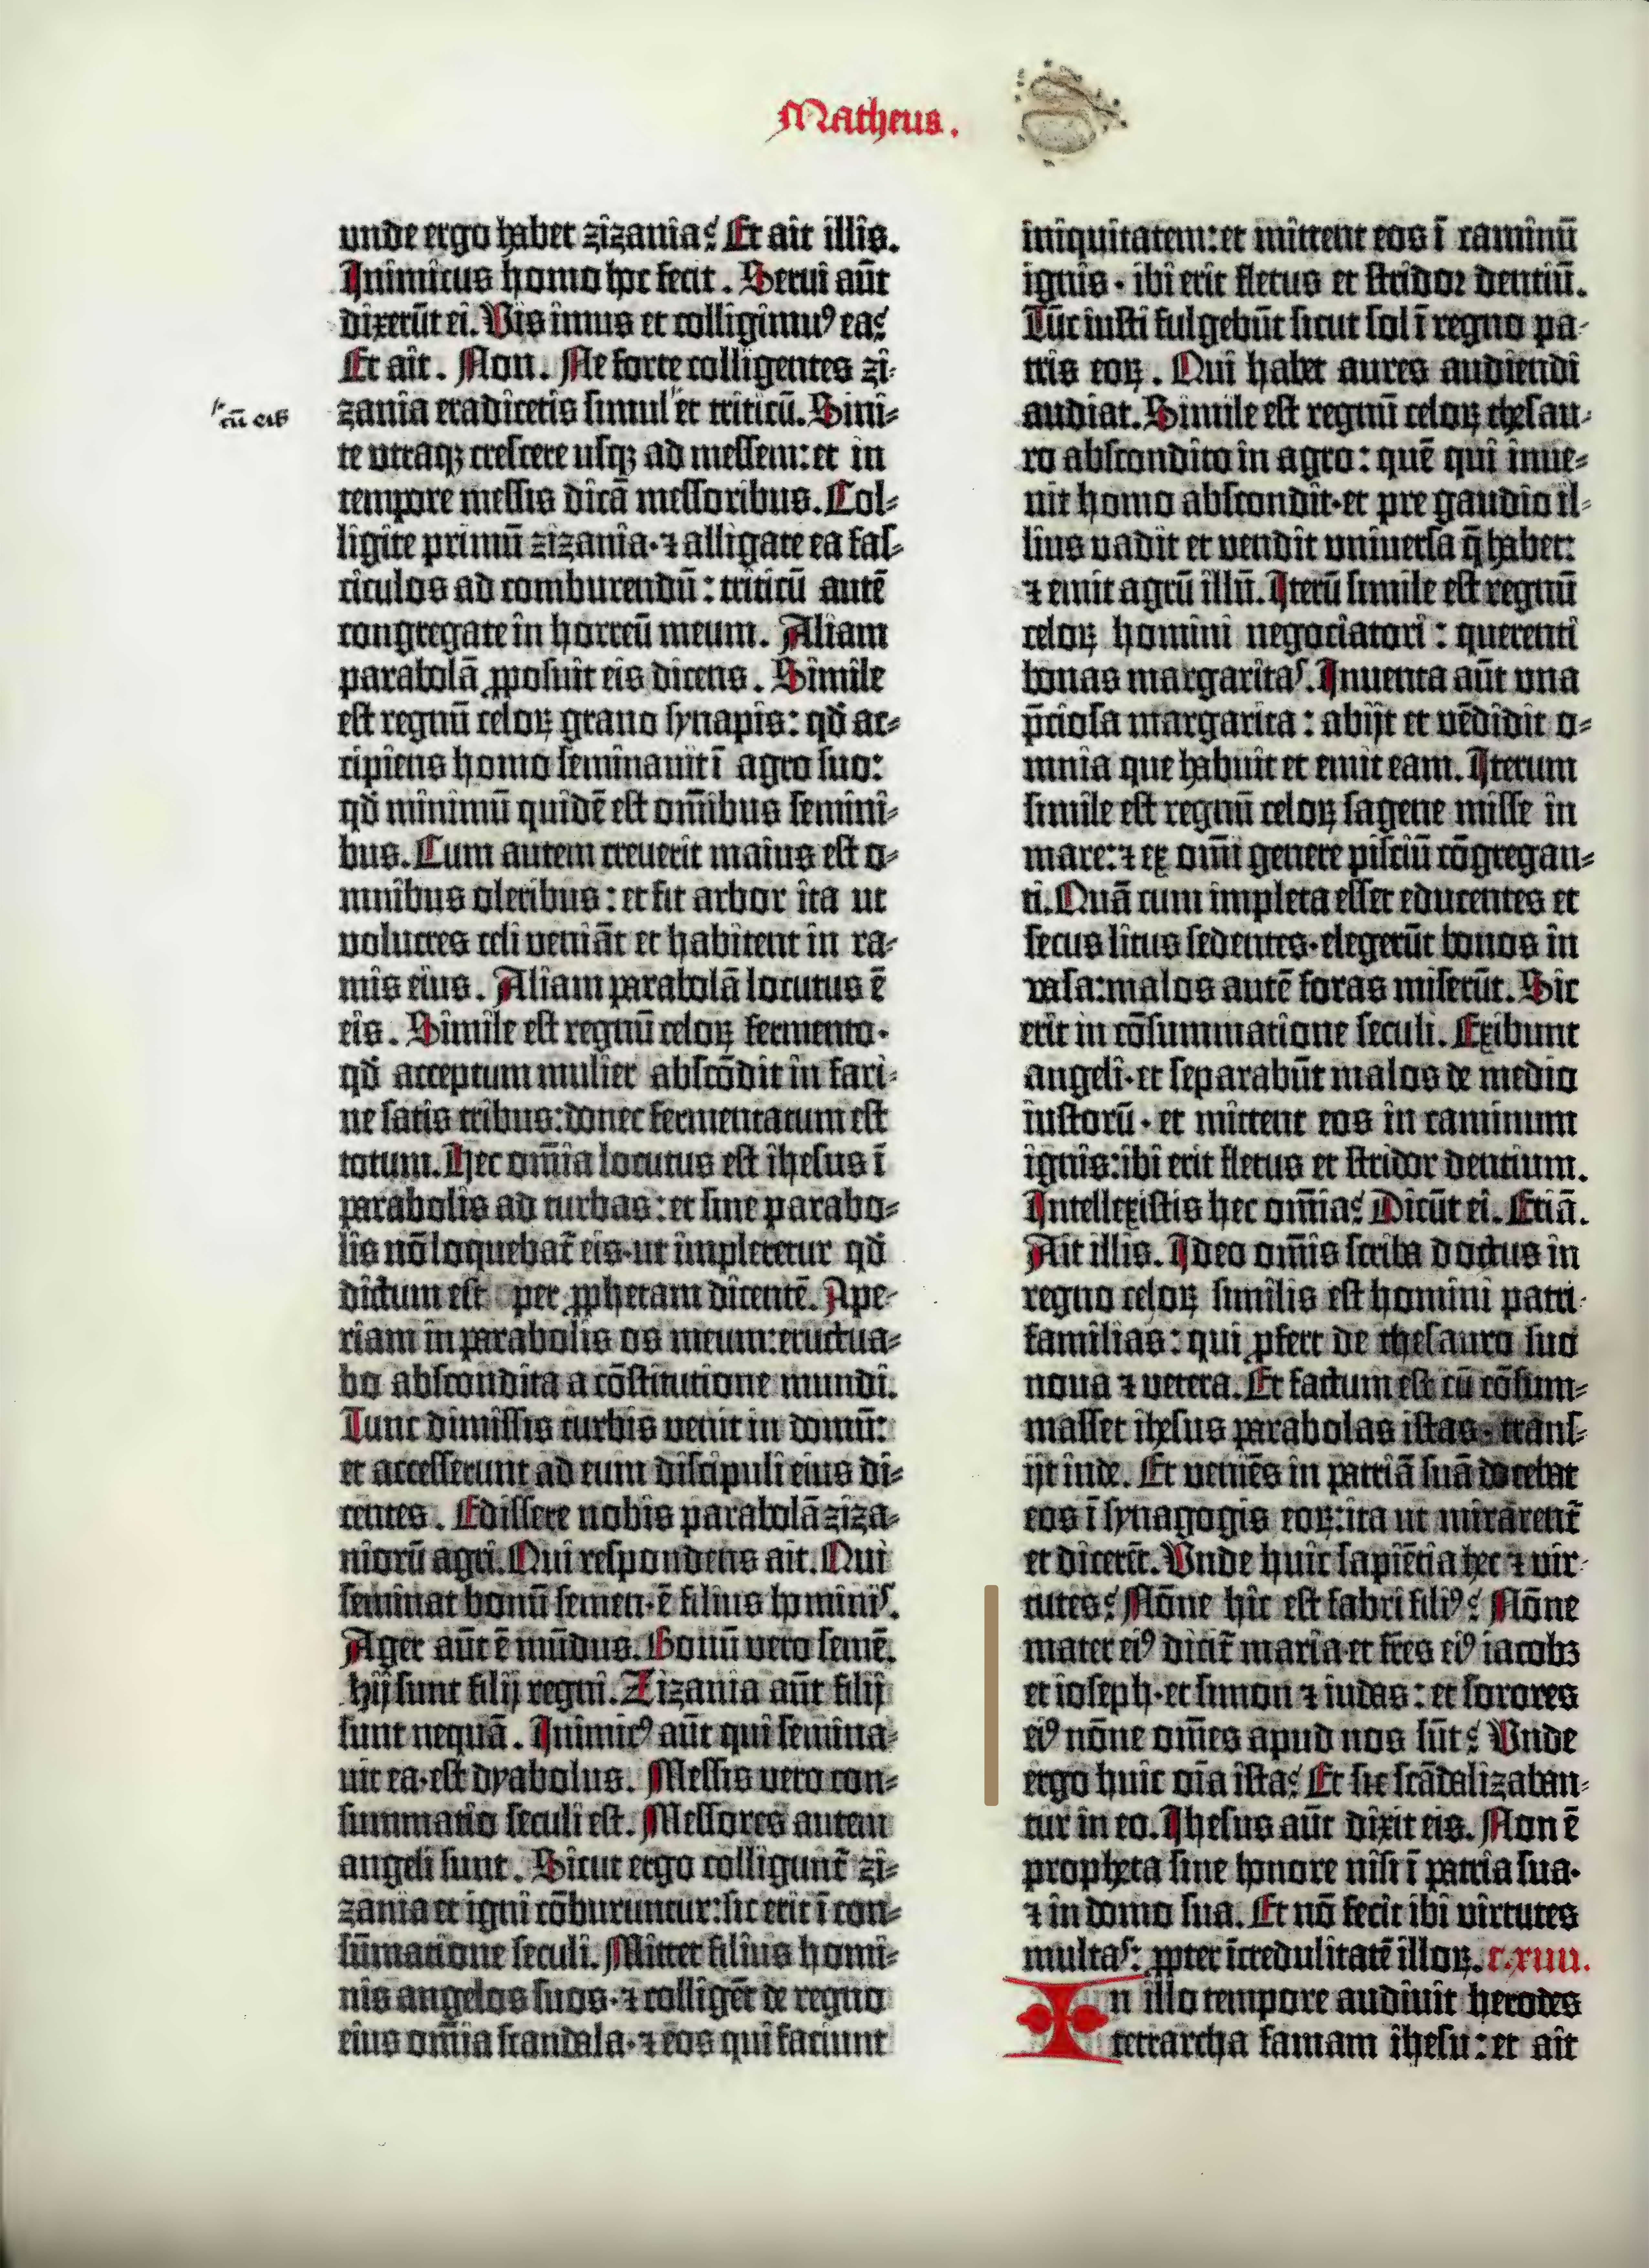 Matheus.
unde ergo habet zizania? Et ait illis.
Inimicus homo hoc fecit. Serui aūt
dixerūt ei. Vis imus et colligimuꝰ ea?
Et ait. Non. Ne forte colligentes zi-
zania eradicetis simul et triticū. Sini-
cū eis
te utraqꝫ crescere usqꝫ ad messem: et in
tempore messis dicā messoribus. Col-
ligite primū zizania·⁊ alligate ea fas-
ciculos ad comburendū: triticū autē
congregate in horreū meum. Aliam
parabolā ꝓposuit eis dicens. Simile
est regnū celoꝝ grano synapis: qđ ac-
cipiens homo seminauit ī agro suo:
qđ minimū quidē est om̄ibus semini-
bus. Cum autem creuerit maius est o-
mnibus oleribus: et fit arbor ita ut
volucres celi veniāt et habitent in ra-
mis eius. Aliam parabolā locutus ē
eis. Simile est regnū celoꝝ fermento·
qđ acceptum mulier abscōdit in fari-
ne satis tribus: donec fermentatum est
totum. Hec om̄ia locutus est ihesus ī
parabolis ad turbas: et sine parabo-
lis nō loquebat᷑ eis·ut impleretur qđ
dictum est per ꝓphetam dicentē. Ape-
riam in parabolis os meum: eructua-
bo abscondita a cōstitutione mundi.
Tunc dimissis turbis uenit in domū:
et accesserunt ad eum discipuli eius di-
centes. Edissere nobis parabolā ziza-
niorū agri. Qui respondens ait. Qui
seminat bonū semen·ē filius hominis.
Ager aūt ē mūdus. Bonū vero semē.
hij sunt filij regni. Zizania aūt filij
sunt nequā. Inimicꝰ aūt qui semina-
uit ea·est dyabolus. Messis uero con-
summatio seculi est. Messores autem
angeli sunt. Sicut ergo colligunt᷑ zi-
zania et igni cōburuntur: sic erit ī con-
sūmatione seculi. Mittet filius homi-
nis angelos suos·⁊ colligēt de regno
eius om̄ia scandala·⁊ eos qui faciunt
iniquitatem: et mittent eos ī caminū
ignis· ibi erit fletus et stridor dentiū.
Tūc iusti fulgebūt sicut sol ī regno pa-
tris eoꝝ. Qui habet aures audiendi
audiat. Simile est regnū celoꝝ thesau-
ro abscondito in agro: quē qui inue-
nit homo abscondit·et pre gaudio il-
lius uadit et uendit uniuersa q̄ habet:
⁊ emit agrū illū. Iterū simile est regnū
celoꝝ homini negociatori: querenti
bonas margaritas. Inuenta aūt una
p̄ciosa margarita: abijt et vēdidit o-
mnia que habuit et emit eam. Iterum
simile est regnū celoꝝ sagene misse in
mare: ⁊ ex om̄i genere pisciū cōgregan-
ti. Quā cum impleta esset educentes et
secus litus sedentes·elegerūt bonos in
vasa: malos autē foras miserūt. Sic
erit in cōsummatione seculi. Exibunt
angeli·et separabūt malos de medio
iustorū· et mittent eos in caminum
ignis: ibi erit fletus et stridor dentium.
Intellexistis hec om̄ia? Dicūt ei. Etiā.
Ait illis. Ideo om̄is scriba doctus in
regno celoꝝ similis est homini patri
familias: qui ꝓfert de thesauro suo
noua ⁊ uetera. Et factum est cū cōsum-
masset ihesus parabolas istas· trans-
ijt inde. Et veniēs in patriā suā docebat
eos ī synagogis eoꝝ: ita ut mirarent᷑
et dicerēt. Unde huic sapiētia hec ⁊ vir-
tutes? Nōne hic est fabri filiꝰ? Nōne
mater eiꝰ dicit᷑ maria·et fr̄es eiꝰ iacobꝫ
et ioseph·et simon ⁊ iudas: et sorores
eiꝰ nōne om̄es apud nos sūt? Unde
ergo huic oīa ista? Et sic scādalizaban-
tur in eo. Ihesus aūt dixit eis. Non ē
propheta sine honore nisi ī patria sua·
⁊ in domo sua. Et nō fecit ibi virtutes
multas: ꝓpter īcredulitatē illoꝝ. c. xiiii.
In illo tempore audiuit herodes
tetrarcha famam ihesu: et ait